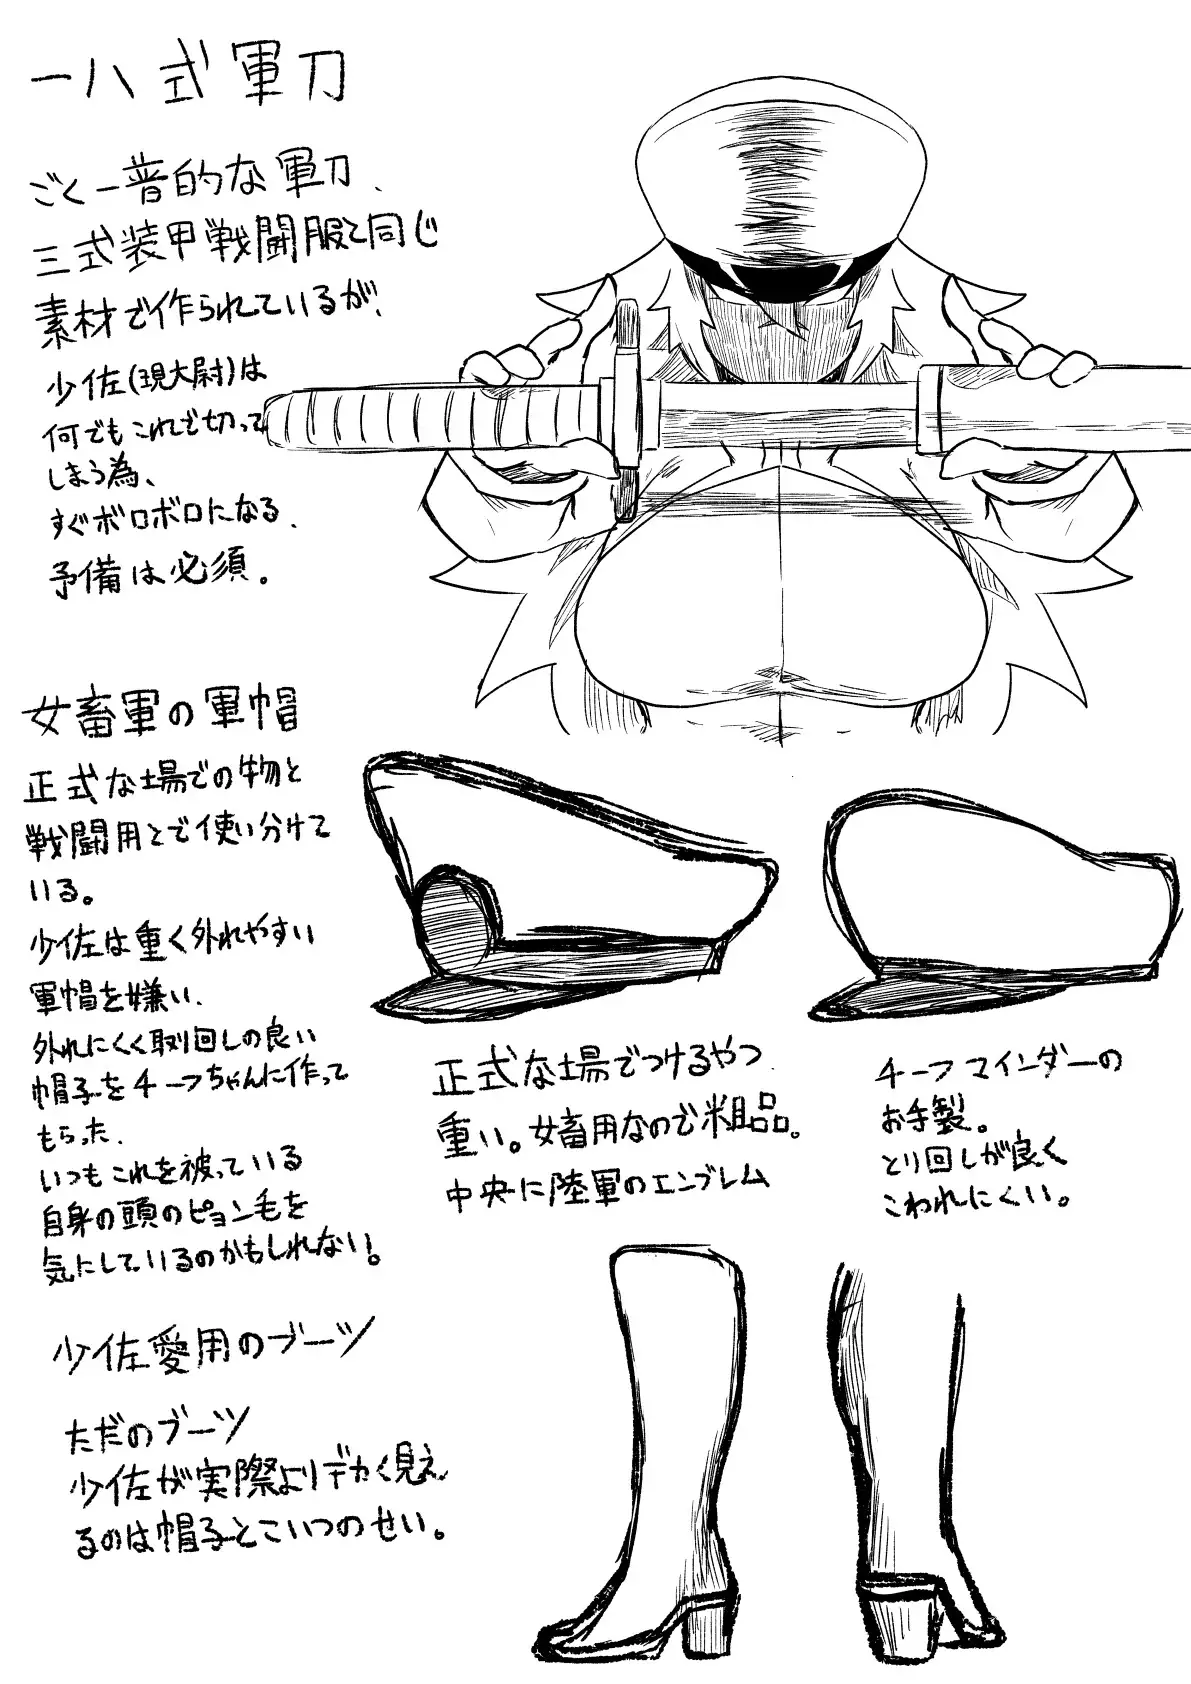 一八式軍刀
ごく一普的な軍刀、
三式装甲戦闘服と同じ
素材で作られているが、
少佐(現大尉)は
何でもこれで切って
しまう為、
すぐボロボロになる、
予備は必須。
女畜軍の軍帽
正式な場での物と
戦闘用とで使い分けて
いる。
少佐は重く外れやすい
軍帽を嫌い、
外れにくく取り回しの良い
帽子をチーフちゃんに作って
もらった、
いつもこれを被っている
自身の頭のピョン毛を
気にしているのかもしれない。
正式な場でつけるやつ
重い。女畜用なので粗品。
中央に陸軍のエンブレム
チーフマインダーの
お手製。
とり回しが良く
こわれにくい。
少佐愛用のブーツ
ただのブーツ
少佐が実際よりデカく見え
るのは帽子とこいつのせい。